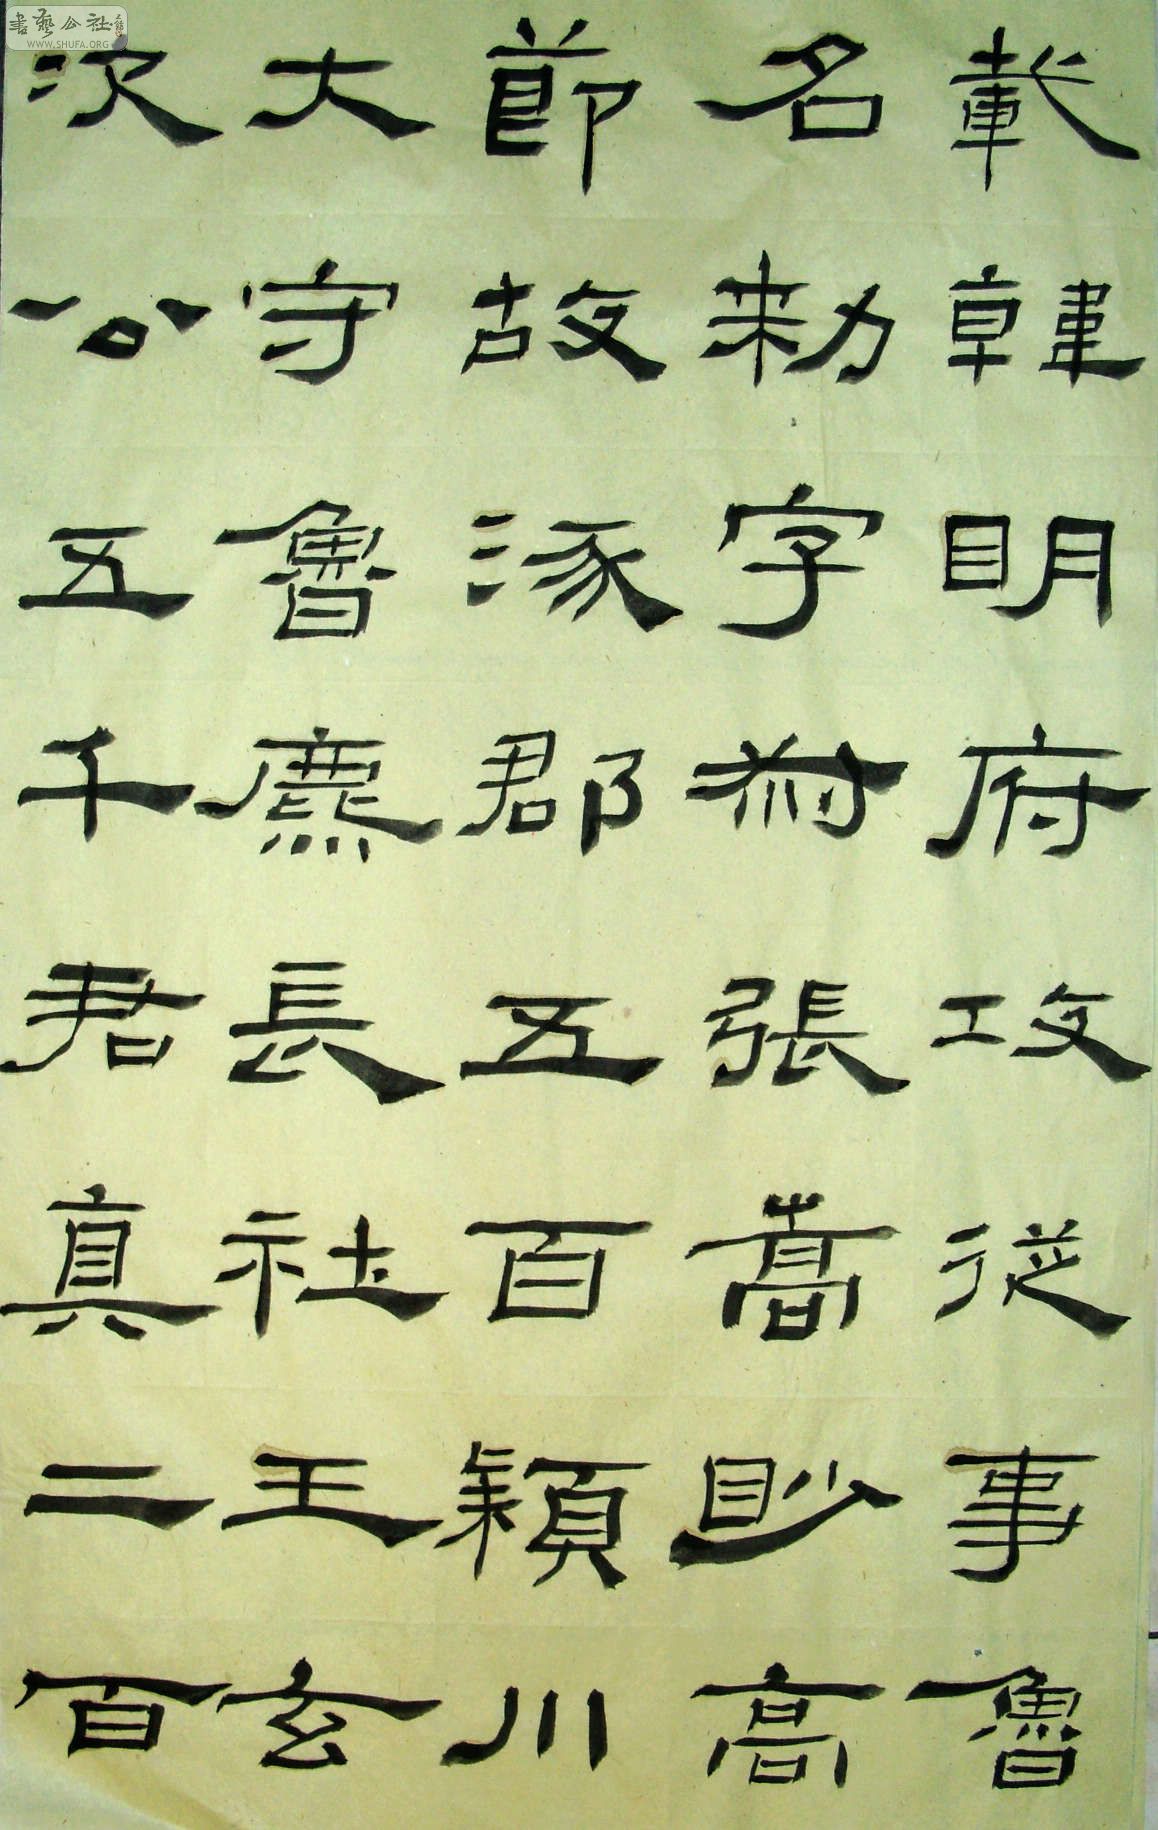 載韓明府攻従事魯
名勑字叔張嵩眇高
節故涿郡五百穎川
大守魯麃長社王玄
次公五千君真二百
書藝公社
WWW.SHUFA.ORG